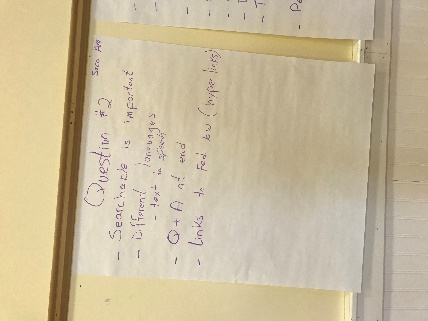 Question #2
- Searchable is important
- Different languages
- text to speech
- Q + A at end
- Links to Fed law (hyperlinks)